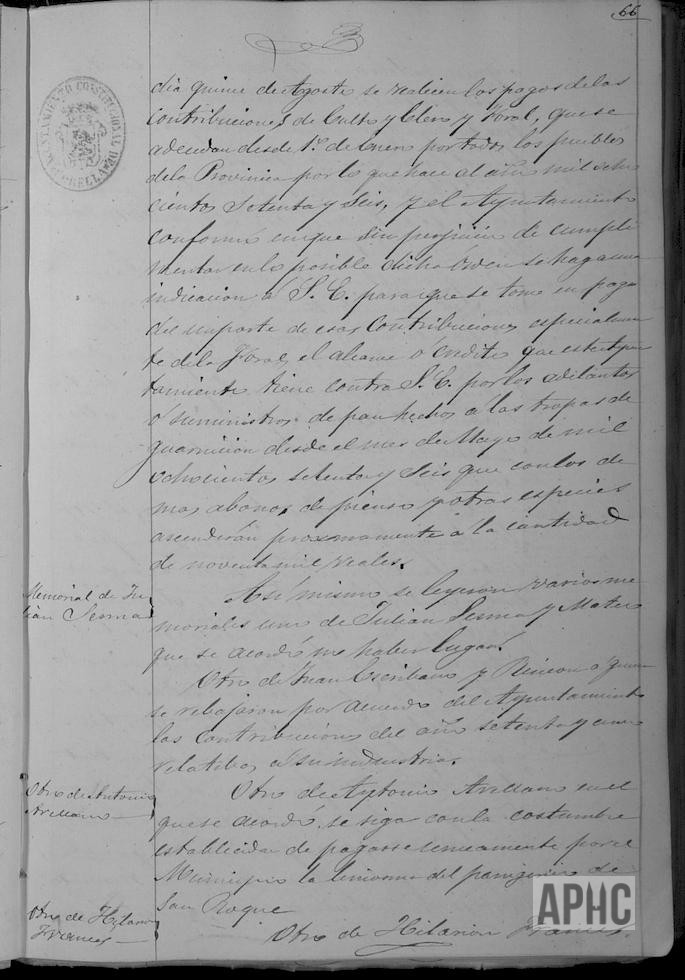 66
AYUNTAMIENTO CONSTITUCIONAL DE
día quince de Agosto se realicen los pagos de las
Contribuciones de Culto y Clero y Foral, que se
adeudan desde 1º de Enero por todos los pueblos
de la Provincia por lo que hace al año mil ocho
cientos setenta y seis, y el Ayuntamiento
conformó en que sin perjuicio de cumpli
mentar en lo posible dicha orden se haga una
indicacion á S. E. para que se tome en pago
del importe de esas Contribuciones especialmen
te de la Foral, el alcance ó crédito que este Ayun
tamiento tiene contra S. E. por los adelantos
ó suministros de pan hechos á las tropas de
guarnicion desde el mes de Mayo de mil
ochocientos setenta y seis que con los de
mas abonos de pienso y otras especies
ascenderán proximamente á la cantidad
de noventa mil reales.
Memorial de Ju
lian Serma
Asi mismo se leyeron varios me
moriales uno de Julian Serma y Mateo
que se acordó no haber lugar.
Otro de Juan Escribano y Rincon á quien
se rebajaron por acuerdo del Ayuntamiento
las contribuciones del año setenta y
relatibas á su industria.
Otro de Antonio
Arellano
Otro de Antonio Arellano en el
que se acordó se siga con la costumbre
establecida de pagarse unicamente por el
Municipio la limosna del panegirico de
San Roque
Otro de Hilarion
Frances
Otro de Hilarion Frances
APHC